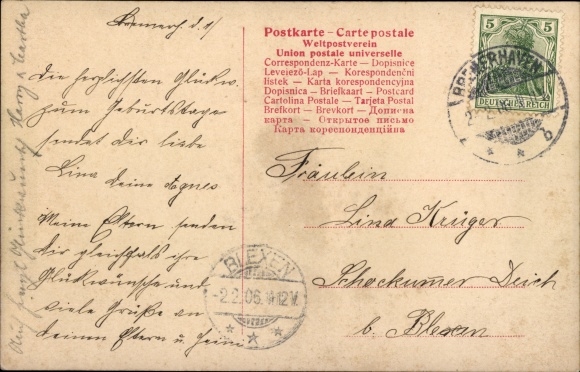 Postkarte - Carte postale
Weltpostverein
Union postale universelle
Correspondenz-Karte — Dopisnice
Levelező-Lap — Korespondenční
lístek — Karta korespondencyjna
Dopisnica — Briefkaart — Postcard
Cartolina Postale — Tarjeta Postal
Brefkort — Brevkort — Дописна
карта — Открытое письмо
Карта кореспонденційна
5 5
DEUTSCHES REICH
BREMERHAVEN
b
Die herzlichsten Glückw.
zum Geburtstage
sendet dir liebe
Lina deine Agnes
Meine Eltern senden
dir gleichfalls ihre
Glückwünsche und
viele Grüße an
deinen Eltern u.
BLEXEN
2.2.06.
12V.
Fräulein
Lina Krüger
Schockumer Deich
b. Blexen